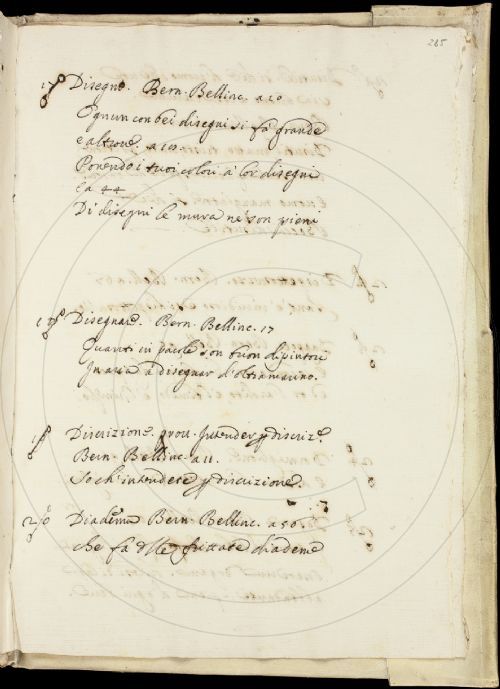 285
Disegno. Bern. Bellinc. a 10
Ognun con bei disegni si fà grande
e altrove. a 101.
Ponendo i tuoi colori à lor disegni
Ea 44
Di disegni le mura ne son pieni
Disegnare. Bern. Bellinc. 17
Quanti in parole son buon dipintori
In aria à disegnar d'oltramarino.
Discrizione. prov. Intender p discriz.e
Bern. Bellinc. a 11.
So ch'intendete p discrizione.
Diadema Bern. Bellinc. a 50.
che fà delle frittate diademe